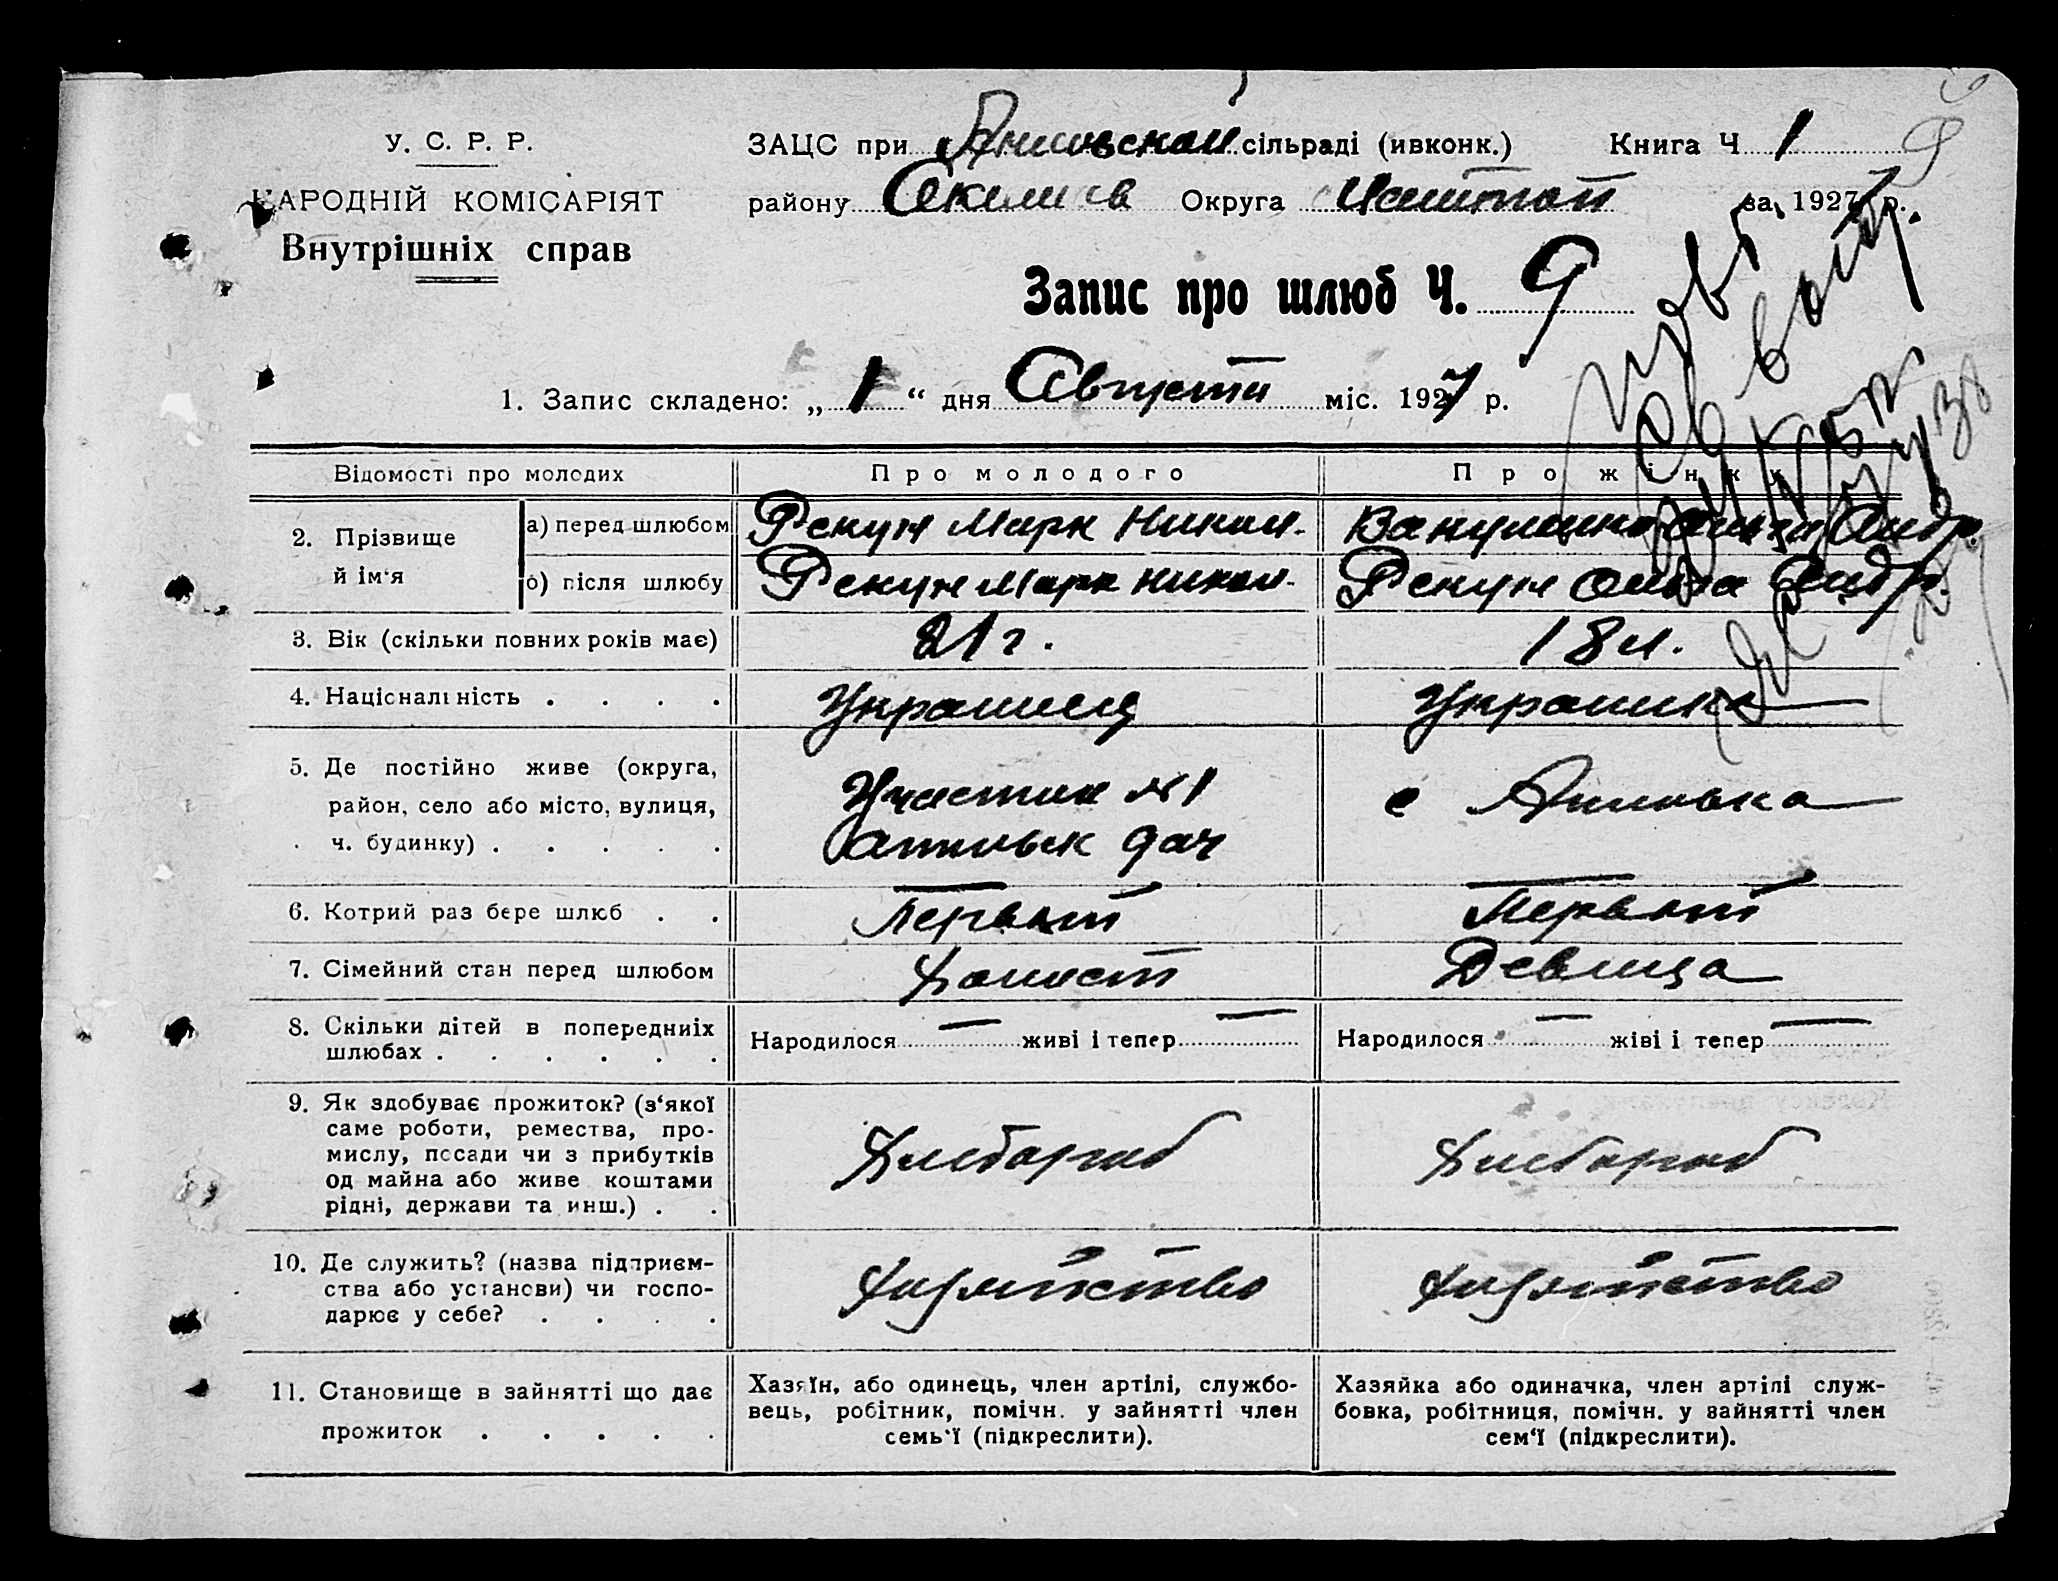 У. С. Р. Р.
НАРОДНІЙ КОМІСАРІЯТ
Внутрішніх справ
ЗАЦС при сільраді (ивконк.) Книга Ч 1
району Округа за 1927 р.
Запис про шлюб Ч. 9
1. Запис складено: „ 1 “ дня Августа міс. 1927 р.
Відомості про молодих Про молодого Про жінку
2. Прізвище й ім'я
а) перед шлюбом Рекун Марк Никол. Андр.
б) після шлюбу Рекун Марк Никол. Рекун Ольга Андр.
3. Вік (скільки повних років має) 21 г. 18 л.
4. Національність . . . . Украинец Украинка
5. Де постійно живе (округа,
район, село або місто, вулиця,
ч. будинку) . . . . .
Участок №1
дач
с
6. Котрий раз бере шлюб . . Первый Первый
7. Сімейний стан перед шлюбом Холост Девица
8. Скільки дітей в попередниіх
шлюбах . . . . . .
Народилося — живі і тепер —
Народилося — жіві і тепер —
9. Як здобуває прожиток? (з‘якої
саме роботи, ремества, про-
мислу, посади чи з прибутків
од майна або живе коштами
рідні, держави та инш.) . .
Хлебороб Хлебороб
10. Де служить? (назва підприєм-
ства або установи) чи госпо-
дарює у себе? . . . .
Хозяйство Хозяйство
11. Становище в зайнятті що дає
прожиток . . . . .
Хазяїн, або одинець, член артілі, службо-
вець, робітник, помічн. у зайнятті член
семь‘ї (підкреслити).
Хазяйка або одиначка, член артілі служ-
бовка, робітниця, помічн. у зайнятті член
сем‘ї (підкреслити).